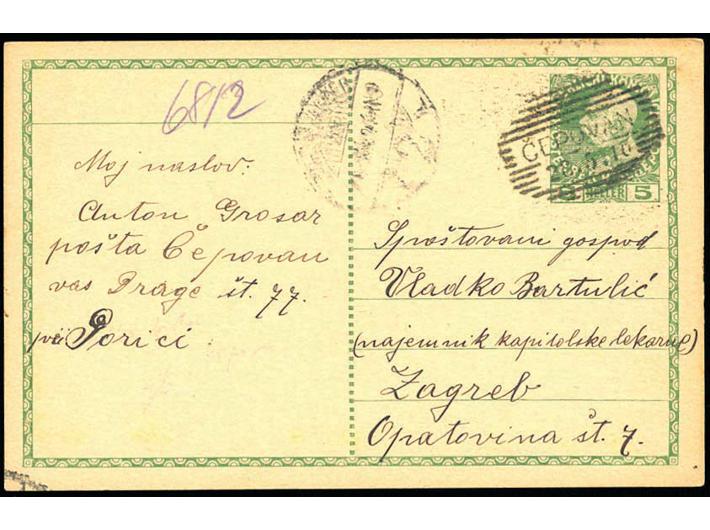 6812
Moj naslov:
Anton Grosar
pošta Čepovan
vas Drage št. 77.
pri Gorici
ČEPOVAN
5 HELLER 5
Spoštovani gospod
Vladko Bartulić
(najemnik kapitolske lekarne)
Zagreb
Opatovina št. 7.